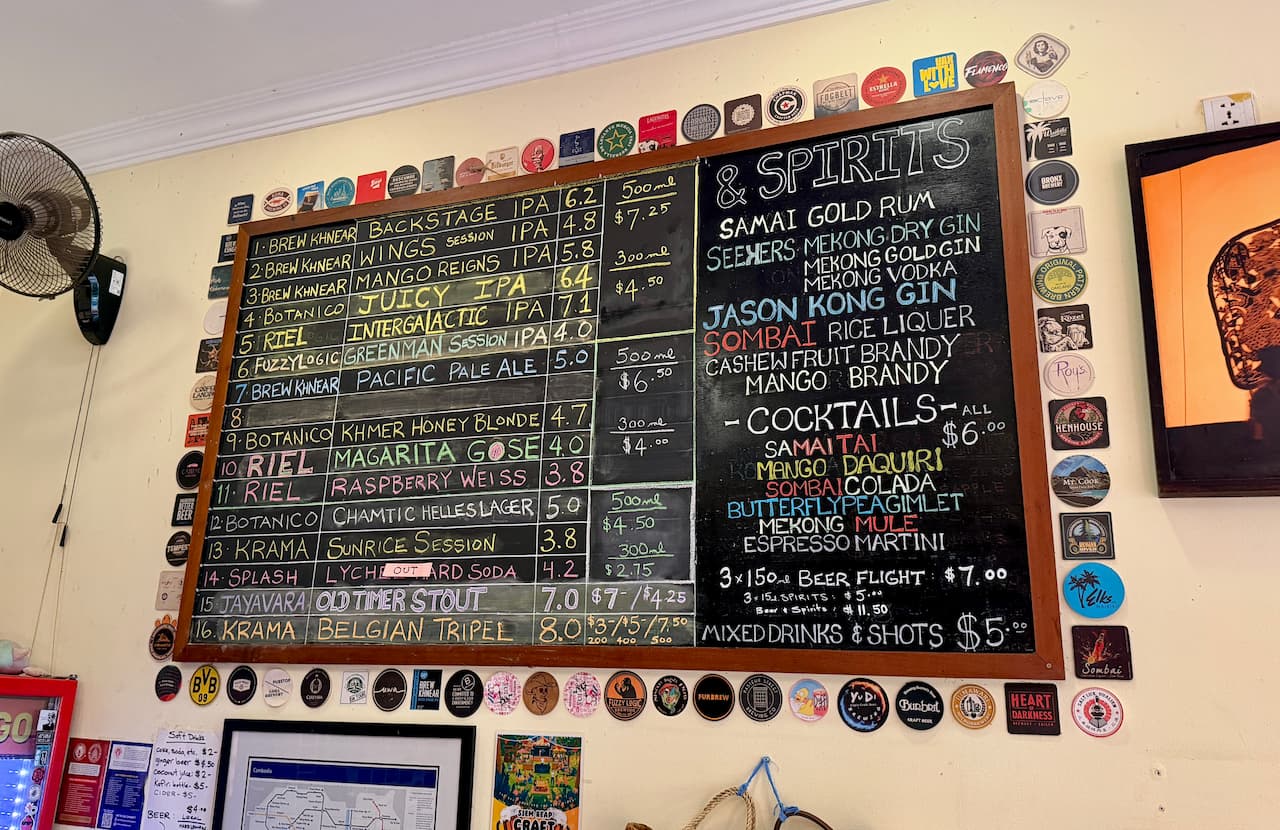 1. BREW KHNEAR BACKSTAGE IPA 6.2
2. BREW KHNEAR WINGS SESSION IPA 4.8
3. BREW KHNEAR MANGO REIGNS IPA 5.8
4. BOTANICO JUICY IPA 6.4
5 RIEL INTERGALACTIC IPA 7.1
6. FUZZYLOGIC GREENMAN SESSION IPA 4.0
7. BREW KHNEAR PACIFIC PALE ALE 5.0
8.
9. BOTANICO KHMER HONEY BLONDE 4.7
10. RIEL MAGARITA GOSE 4.0
11. RIEL RASPBERRY WEISS 3.8
12. BOTANICO CHAMTIC HELLES LAGER 5.0
13. KRAMA SUNRICE SESSION 3.8
14. SPLASH LYCHE OUT ARD SODA 4.2
15. JAYAVARA OLD TIMER STOUT 7.0 $7-/$4.25
16. KRAMA BELGIAN TRIPEL 8.0 $3-/$5-/7.50
200 400 500
500ml
$7.25
300ml
$4.50
500ml
$6.50
300ml
$4.00
500ml
$4.50
300ml
$2.75
& SPIRITS
SAMAI GOLD RUM
SEEKERS MEKONG DRY GIN
MEKONG GOLD GIN
MEKONG VODKA
JASON KONG GIN
SOMBAI RICE LIQUER
CASHEW FRUIT BRANDY
MANGO BRANDY
- COCKTAILS - ALL
$6.00
SAMAI TAI
MANGO DAQUIRI
SOMBAI COLADA
BUTTERFLYPEA GIMLET
MEKONG MULE
ESPRESSO MARTINI
3 x 150ml BEER FLIGHT: $7.00
3 x 15ml SPIRITS: $5.00
Beer & Spirits: $11.50
MIXED DRINKS & SHOTS $5.00
FOGBELT
ESTRELLA
WITH LOVE
FLAMENCO
Waikiki
BRONX BREWERY
ORIGINAL PATTERN BREWING
Kozel
Roy's
HENHOUSE
MT. COOK
Elks
Sombai
BVB
09
BREW KHNEAR
FUZZY LOGIC
FURBREW
YuDi
Burbrit
CRAFT BEER
HEART OF DARKNESS
Soft Drinks
Coke, soda, etc. $2-
ginger beer $4.50
Coconut juice $2-
CIDER - $5-
$4.00
BEER:
LOCAL
Cambodia
SIEM REAP
CRAFT
GO